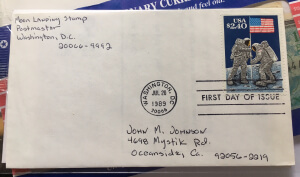 Moon Landing Stamp
Postmaster
Washington, D.C.
20066-9992
USA
$2.40
WASHINGTON, DC
JUL 20
1989
20066
FIRST DAY OF ISSUE
John M. Johnson
4698 Mystik Rd.
Oceanside, Ca. 92056-2219